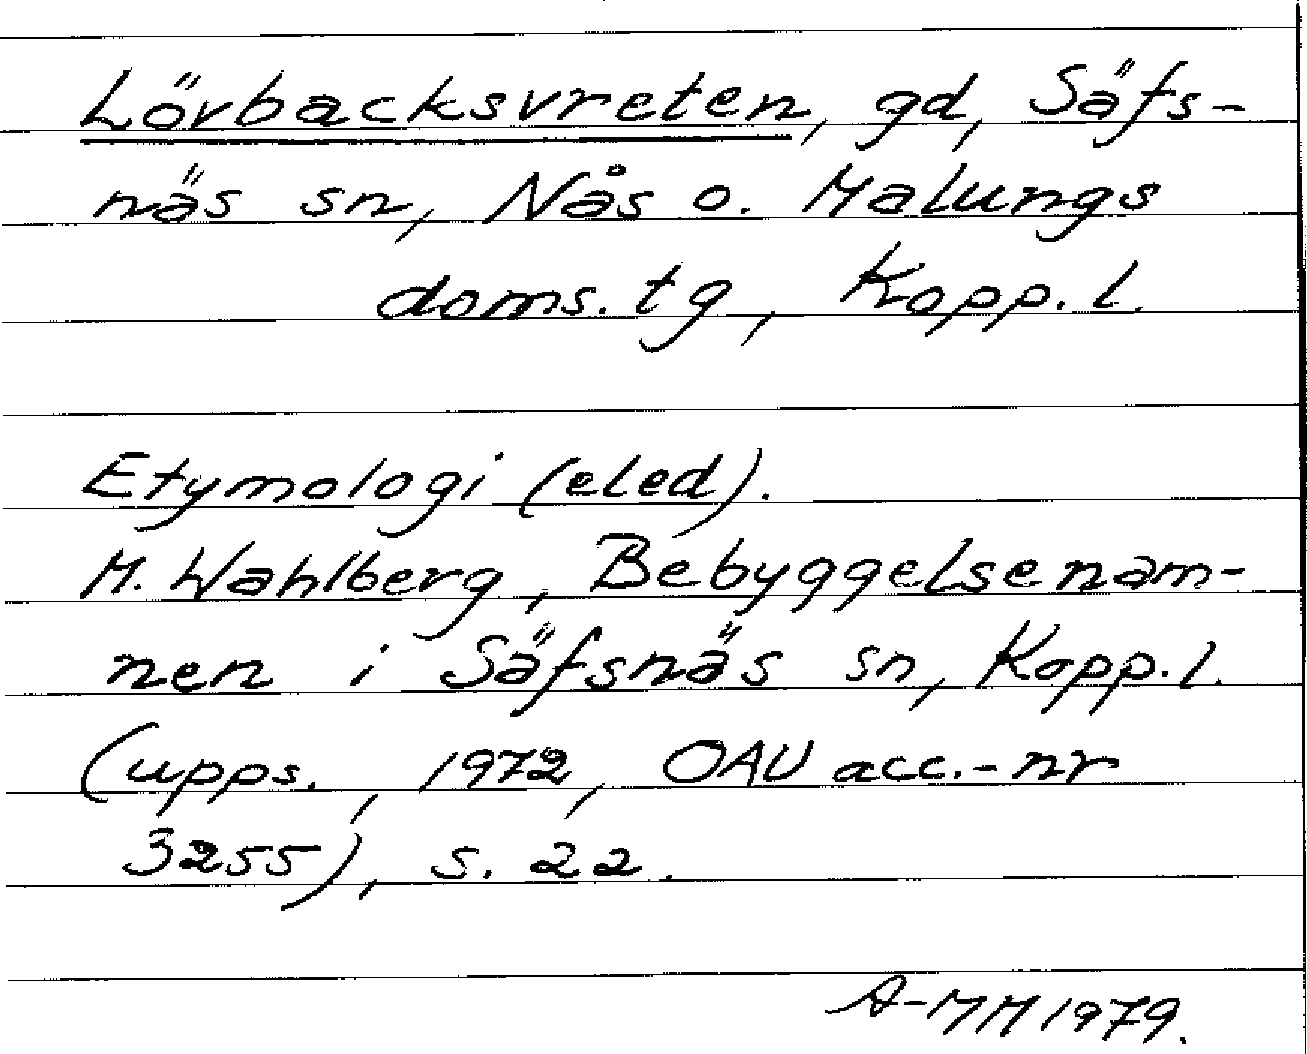 Lövbacksvreten, gd, Säfs-
näs sn, Nås o. Malungs
doms. tg, Kopp. l.
Etymologi (eled).
M. Wahlberg, Bebyggelsenam-
nen i Säfsnäs sn, Kopp. l.
(upps., 1972, OAU acc.-nr
3255), s. 22.
A-MM 1979.